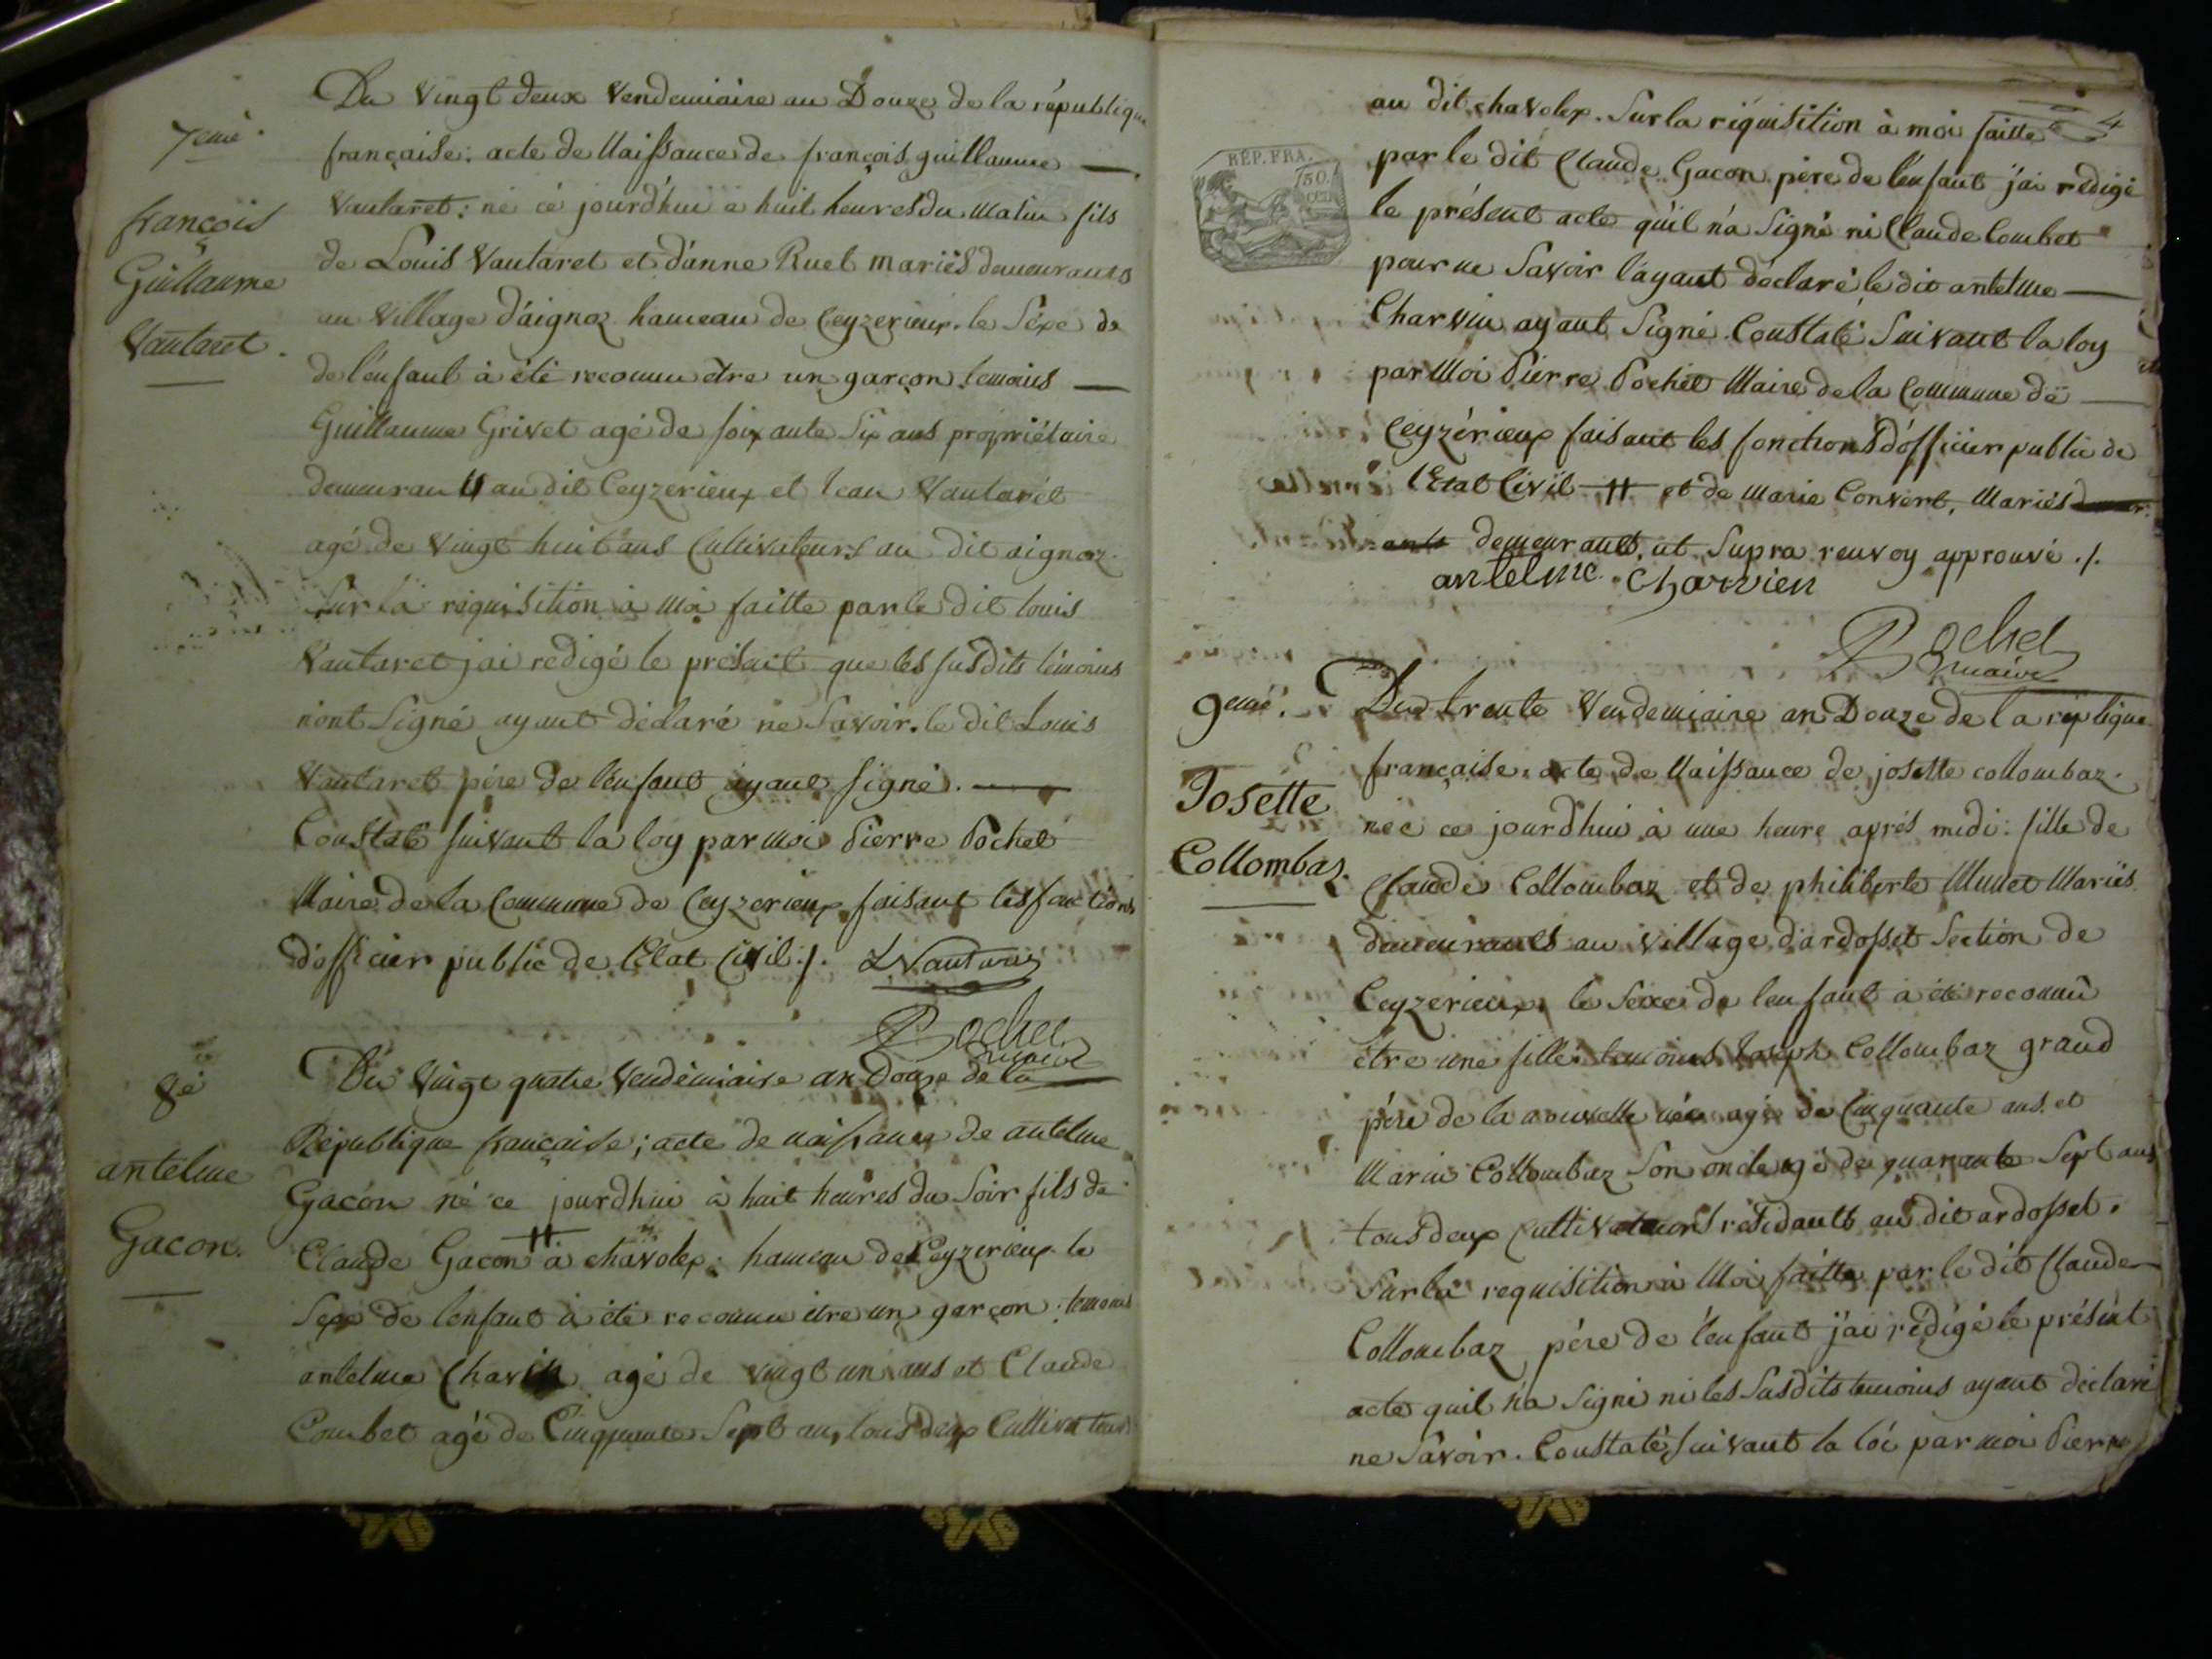 7eme
françois
Guillaume
Vautaret.
Du vingt deux vendemiaire an Douze de la république
française: acte de Naissance de françois guillaume
Vautaret: né cé jourd'hui a huit heures du matin fils
de Louis Vautaret et d'anne Ruet mariés demeurants
au village d'aignoz hameau de Ceyzerieux. le Séxe de
de l'énfant à été reconnu être un garçon. temoins
Guillaume Grivet agé de soixante Six ans propriétaire
demeurant au dit Ceyzerieux et Jean Vautaret
agé de vingt huit ans Cultivateurs au dit aignoz.
Sur la requisition à moi faitte par le dit Louis
Vautaret jai redigé le présent que les susdits témoins
n'iont Signé ayant déclaré ne Savoir. le dit Louis
Vautaret pére de l'énfant ayant signé.
Constaté suivant la loy par moi Pierre Pochet
Maire de la Commune de Ceyzerieux faisant les fonctions
d'officier public de l'Etat Civil ./. LVautaret
Pochet
maire
8é
antelme
Gacon.
Du Vingt quatre Vendémiaire an Douze de la
République française; acte de naissance de antelme
Gacon né ce jourdhui à huit heures du Soir fils de
Claude Gacon # a chavolex: hameau de Ceyzerieux le
Sexe de lenfant à été reconnu être un garçon: temoins
antelme Charvin agé de vingt un ans et Claude
Combet agé de Cinquante Sept ans, tous deux Cultivateurs
4
au dit chavolex. Sur la réquisition à moi faitte
RÉP. FRA.
50.
cen
par le dit Claude Gacon pére de l'énfant j'ai redigé
le présent acte quil n'a Signé ni Claude Combet
pour ne Savoir l'ayant déclaré, le dit antelme
Charvin ayant Signé. Constaté Suivant la loy
par Moi Pierre Pochet Maire de la Commune de
Ceyzérieux faisant les fonctions d'officier public de
l'Etat Civil # et de Marie Convert, Mariés
demeurants. ut Supra renvoy approuvé ./.
antelme Charvien
Pochet
maire
9eme.
Josette
Collombaz.
Du trente Vendemiaire an Douze de la répligue
française: acte de Naissance de josette collombaz.
née ce jourdhui à une heure aprés midi: fille de
Claude Collombaz et de philiberte Munet Mariés
demeurants au village d'ardosset Section de
Ceyzerieux, le Sexe de lenfant à été reconnû
être une fille. temoins Joseph Collombaz grand
pére de la nouvelle née agé de Cinquante ans. et
Marin Collombaz Son oncle agé de quarante Sept ans
tous deux Cultivateurs résidants au dit ardosset.
Sur la requisition à Moi faitte par le dit Claude
Collombaz pére de l'énfant j'ai rédigé le présent
acte quil n'a Signé ni les Susdits temoins ayant déclaré
ne Savoir. Constaté, suivant la loi par moi Pierre